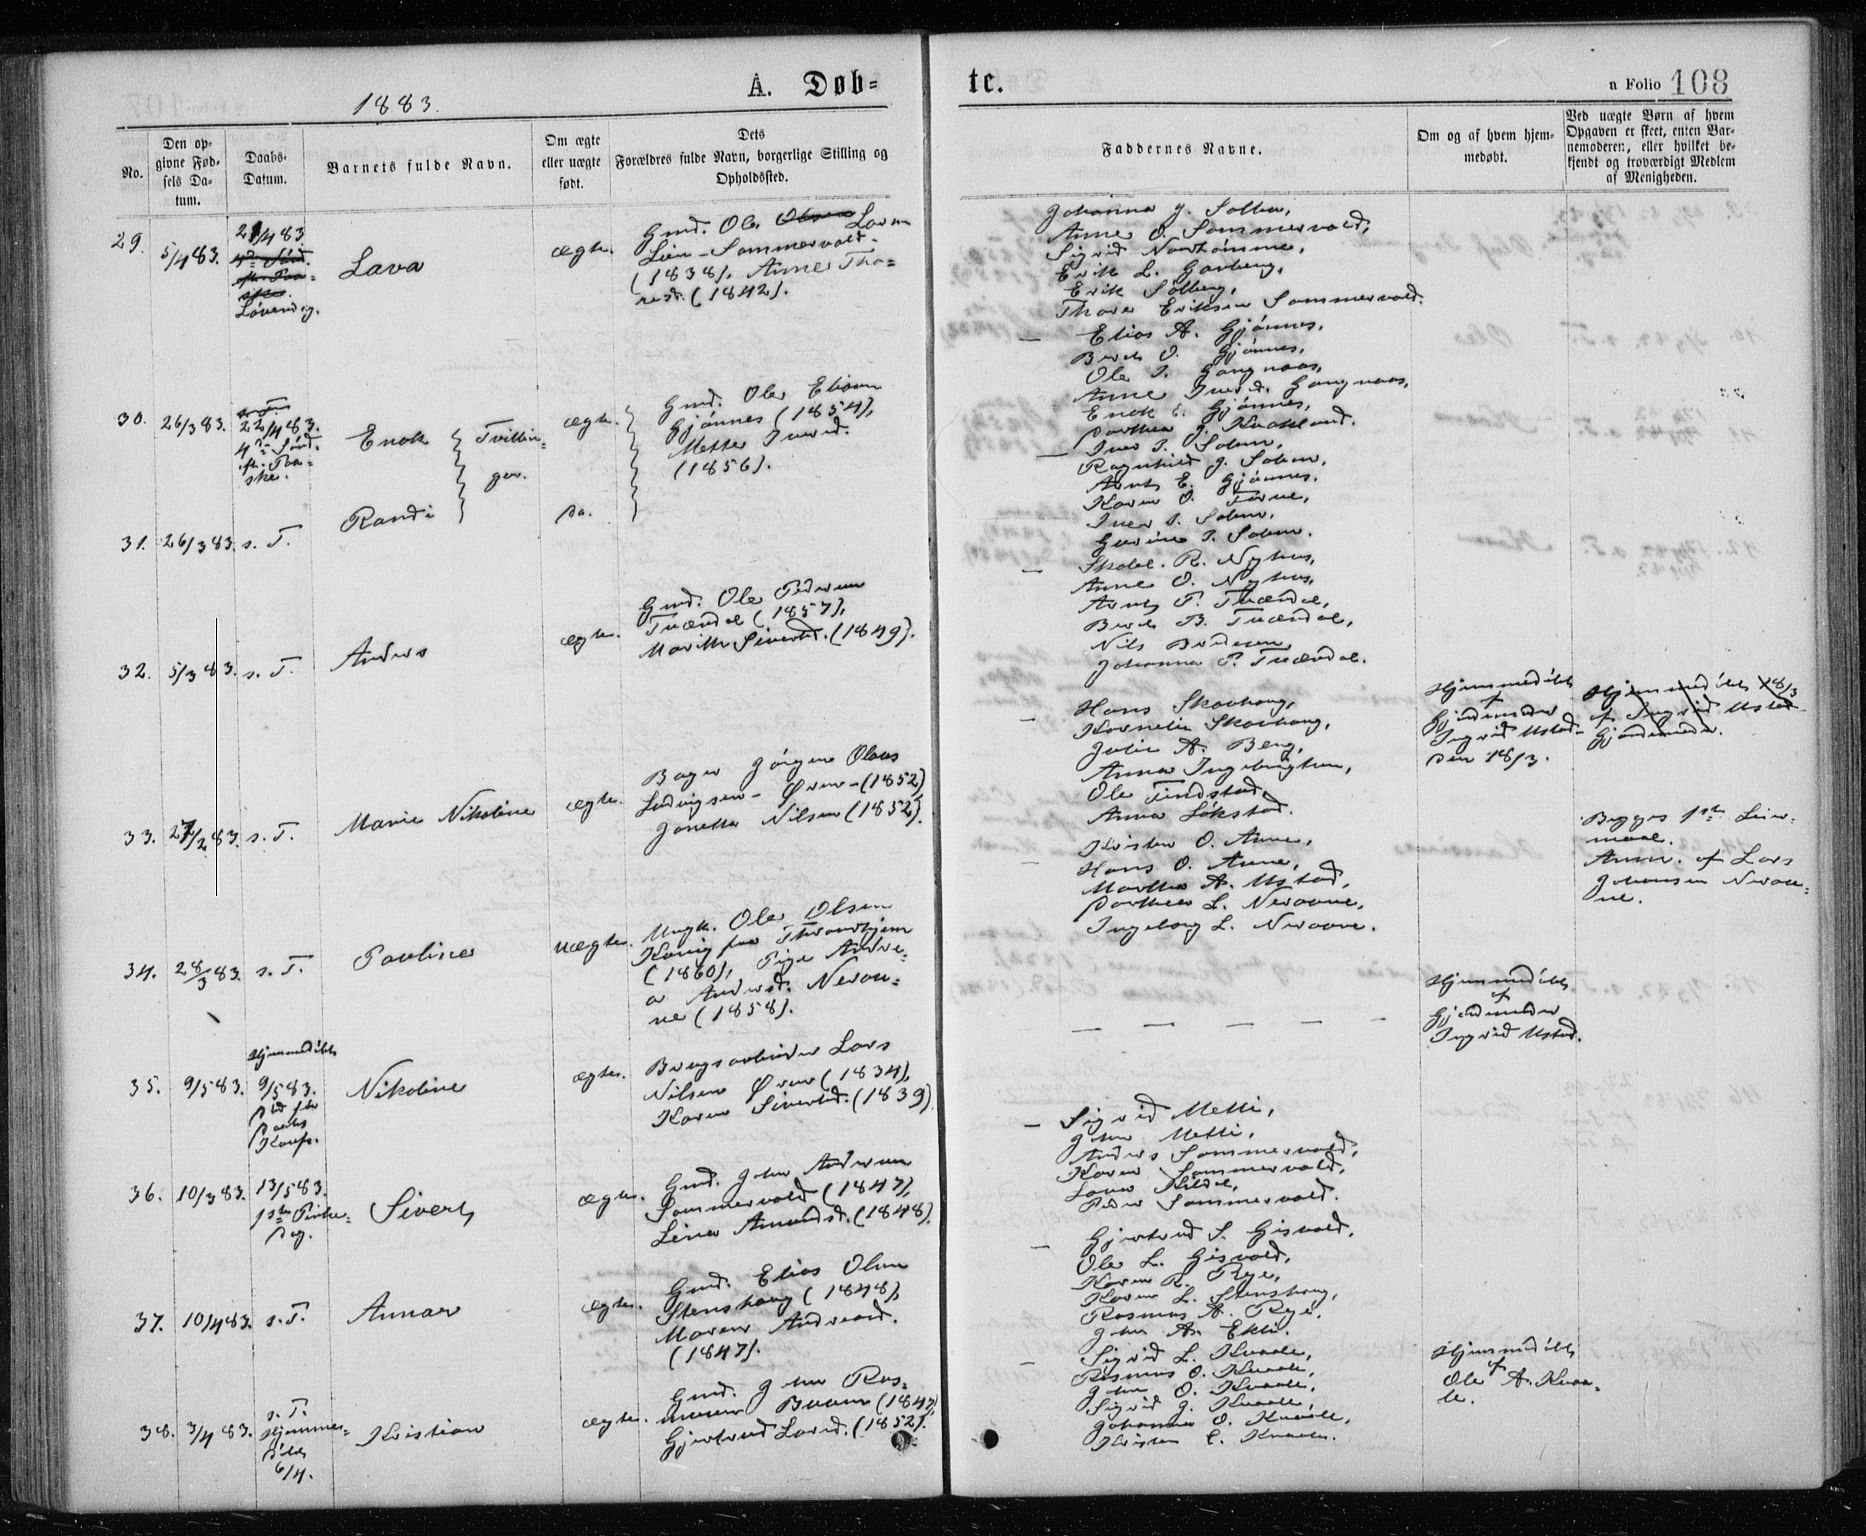 1883.
A. Døb=
te.
n Folio 108
No.
Den op-
givne Fød-
sels Da-
tum.
Daabs-
Datum.
Barnets fulde Navn.
Om ægte
eller uægte
født.
Dets
Forældres fulde Navn, borgerlige Stilling og
Opholdssted.
Faddernes Navne.
Om og af hvem hjem-
medøbt.
Ved uægte Børn af hvem
Opgaven er skeet, enten Bar-
nemoderen, eller hvilket be-
kjendt og troværdigt Medlem
af Menigheden.
29.
5/4 83.
21/4 83
Løverdag.
Lava
ægte.
Gmd. Ole Larsen
Lien-Sommervold-
(1838), Anne Tho-
resd. (1842).
Johanna J. Solberg,
Anne O. Sommervold,
Sigrid
Erik L. Garberg,
Erik Solberg,
Thore Eriksen Sommervold.
30.
26/3 83.
22/4 83.
4de Sønd.
eft. Paa-
ske.
Enok
Tvillin-
ger.
ægte.
Gmd. Ole Eliasen
Gjønnes (1854),
Mette Iversd.
(1856).
Elias A. Gjønnes,
Berit O. Gjønnes,
Ole I.
Anne Iversd.
Enok E. Gjønnes,
Dorthea J.
31.
26/3 83.
s. T.
Randi
do.
Iver I. Solem,
Ragnhild J. Solem,
Arnt E. Gjønnes,
Karen O.
Iver I. Solem,
Gurine I. Solem.
32.
5/3 83.
s. T.
Anders
ægte.
Gmd. Ole Pedersen
Tuændal (1857),
Marith Sivertsd. (1849).
R. Nyhus,
Anne O. Nyhus,
Arnt P. Tuændal,
Berit B. Tuændal,
Nils
Johanna P. Tuændal.
33.
27/2 83.
s. T.
Marie Nikoline
ægte.
Bager Jørgen Olaus
Ludvigsen-Øren-(1852),
Janetta Nilsen (1852).
Hans Skavhaug,
Kornelia Skavhaug,
Julie A. Berg,
Anna Ingebrigtsen,
Ole Tindstad,
Anna Løkstad.
Hjemmedøbt
af
Gjordemoder
Ingrid Ustad
den 18/3.
Hjemmedøbt 18/3
af Ingrid Ustad
Gjordemoder.
34.
28/3 83.
s. T.
Pauline
uægte.
Ungk. Ole Olsen
Kavig fra Throndhjem
(1860), Pige Andre-
a Andersd. Nervou-
ne (1858).
Kristen O. Aune,
Hans O. Aune,
Martha A. Ustad,
Dorthea L.
Ingeborg L.
Begges 1ste Leier-
maal.
Anm. af Lars
Johansen
35.
9/5 83.
Hjemmedøbt
9/5 83.
Nikoline
ægte.
Brugsarbeider Lars
Nilsen Øren (1834),
Karen Sivertsd. (1839).
Hjemmedøbt
af
Gjordemoder
Ingrid Ustad.
36.
10/3 83.
13/5 83.
1ste Pintse-
dag.
Sivert
ægte.
Gmd. John Andersen
Sommervold (1847),
Lina Amundsd. (1848).
Sigrid Metli,
John Metli,
Anders Sommervold,
Karen Sommervold,
Peder Sommervold.
37.
10/4 83.
s. T.
Annar
ægte.
Gmd. Elias Olsen
Stenshaug (1848),
Maren Andreasd.
(1847).
Gjertrud S. Gisvold,
Ole L. Gisvold,
Karen R. Rye,
Karen L. Stenshaug,
Rasmus A. Rye,
John A. Ekli.
38.
3/4 83.
s. T.
Hjemme-
døbt
6/4.
Kristian
ægte.
Gmd. John Ras-
musen
Gjertrud Larsd. (1852).
Sigrid L. Kvaale,
Rasmus O. Kvaale,
John O. Kvaale,
Sigrid J. Kvaale,
Johanna O. Kvaale,
Kristen E. Kvaale.
Hjemmedøbt
af
Ole A. Kvaa-
le.